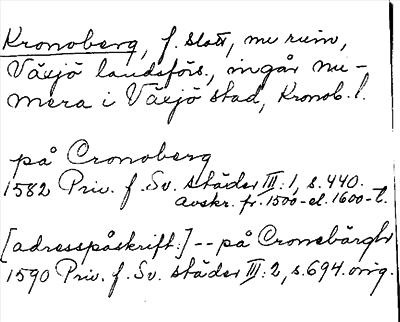 Kronoberg, f. slott, nu ruin,
Växjö landsförs., ingår nu-
mera i Växjö stad, Kronob. l.
på Cronoberg
1582 Priv. f. Sv. städer III:1, s. 440.
avskr. fr. 1500-el. 1600-t.
[adresspåskrift:] -- på Cronebärgh
1590 Priv. f. Sv. städer III:2, s. 694. orig.